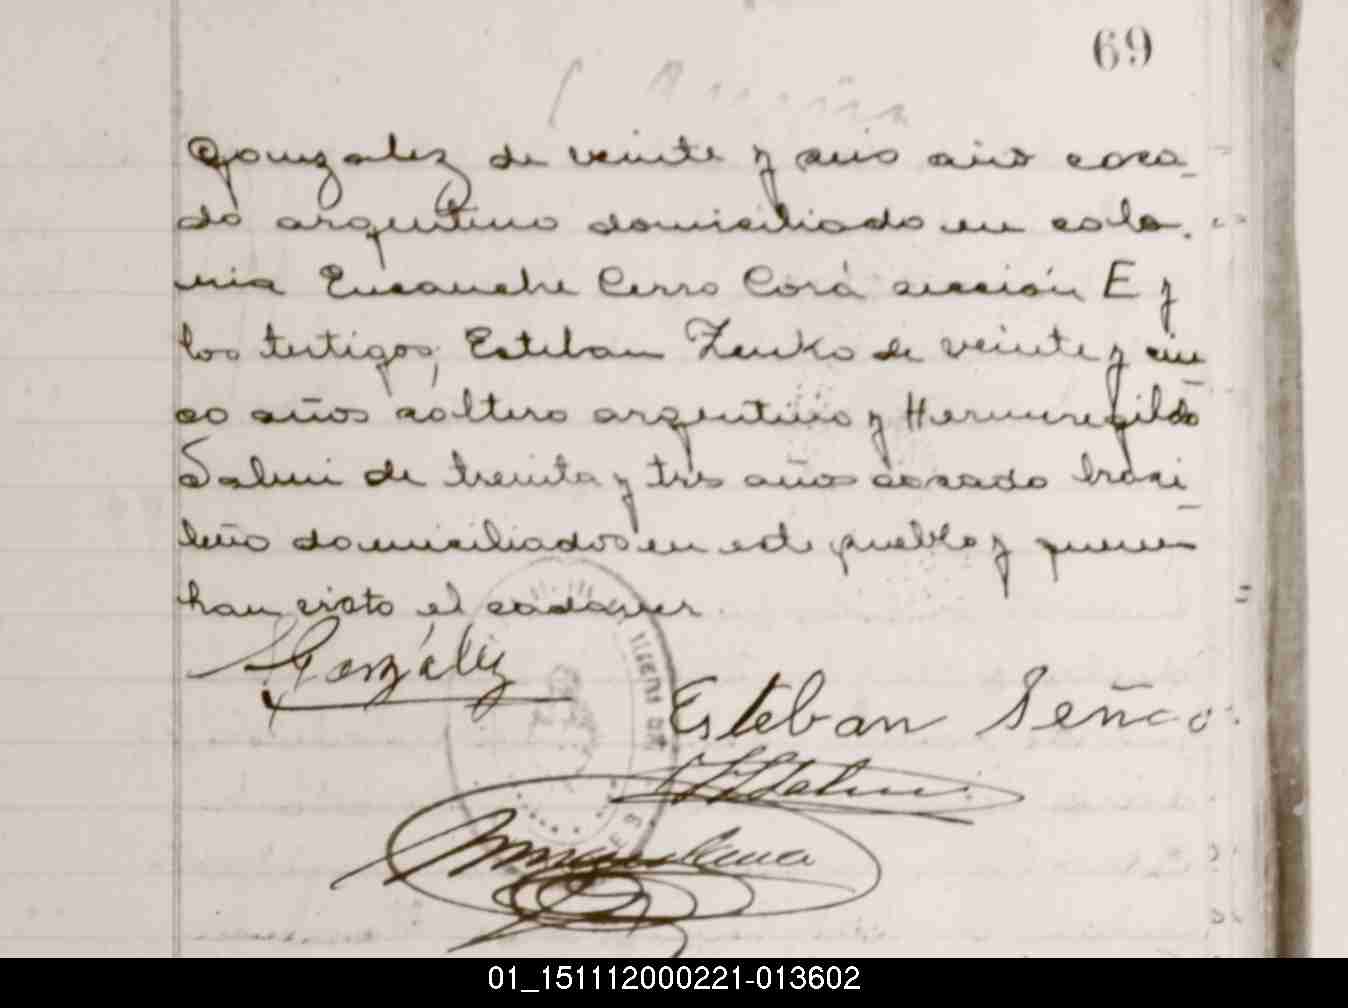 69
Gonzalez de veinte y seis años casa-
do argentino domiciliado en colo-
nia Ensanche Cerro Corá sección E y
los testigos, Esteban Zenko de veinte y cin-
co años soltero argentino y Hermenegildo
Salmi de treinta y tres años casado brasi-
leño domiciliados en este pueblo y quienes
han visto el cadaver
González
Esteban Señco
01_151112000221-013602